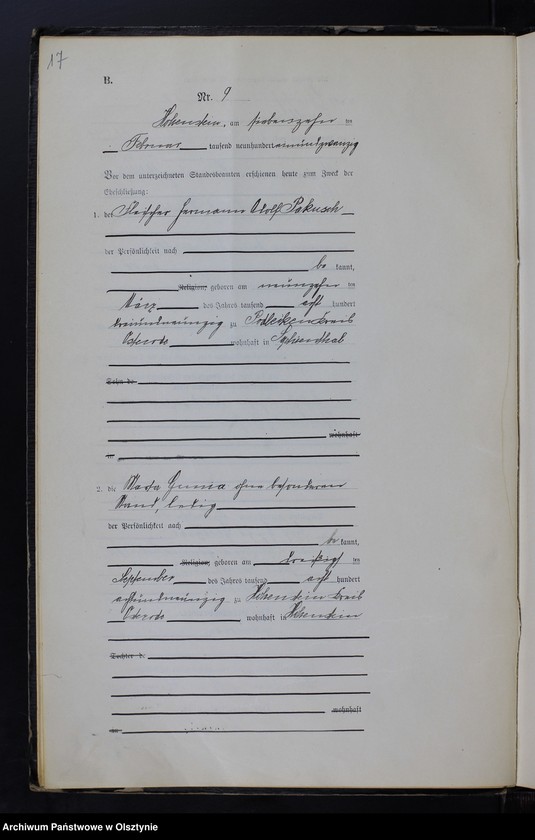 17
B.
Nr. 9
Hohenstein, am siebenzehn ten
Februar tausend neunhundert
Vor dem unterzeichneten Standesbeamten erschienen heute zum Zweck der
Eheschließung:
1. der Fleischer Hermann Adolf Pakusch
der Persönlichkeit nach
be kannt,
Religion, geboren am neunzehn ten
März des Jahres tausend acht hundert
dreiundneunzig zu Kreis
Osterode wohnhaft in
Sohn de
wohnhaft
in
2. die Emma ohne besonderen
Stand, ledig
der Persönlichkeit nach
be kannt,
Religion, geboren am dreißigst en
September des Jahres tausend acht hundert
achtundneunzig zu Hohenstein Kreis
Osterode wohnhaft in Hohenstein
Tochter d.
wohnhaft
in
Archiwum Państwowe w Olsztynie